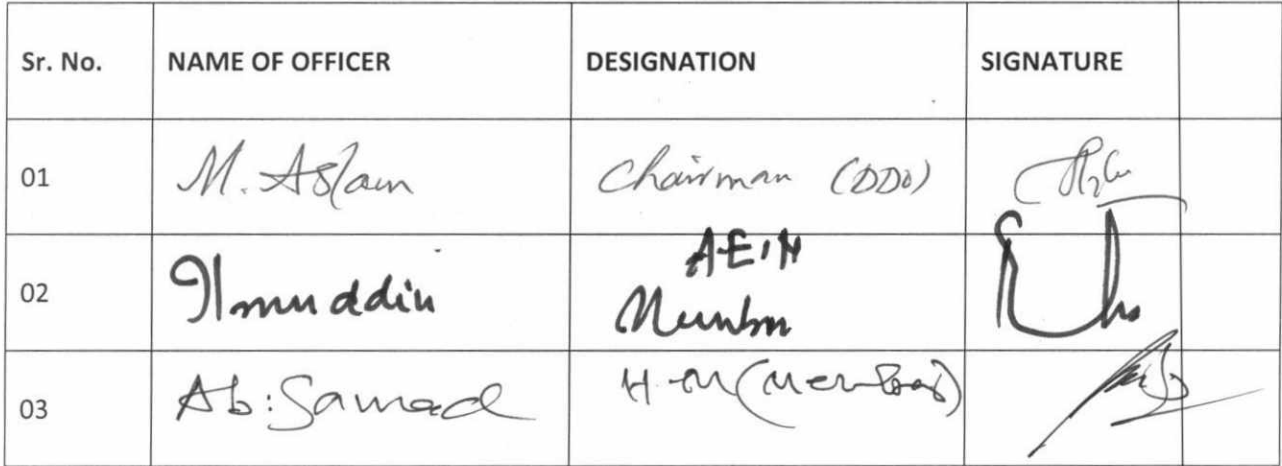 Sr. No. NAME OF OFFICER DESIGNATION SIGNATURE
01 M. Aslam Chairman (DDO)
02 Ilmuddin A.E.H
Member
03 Ab: Samad H.M (Member)